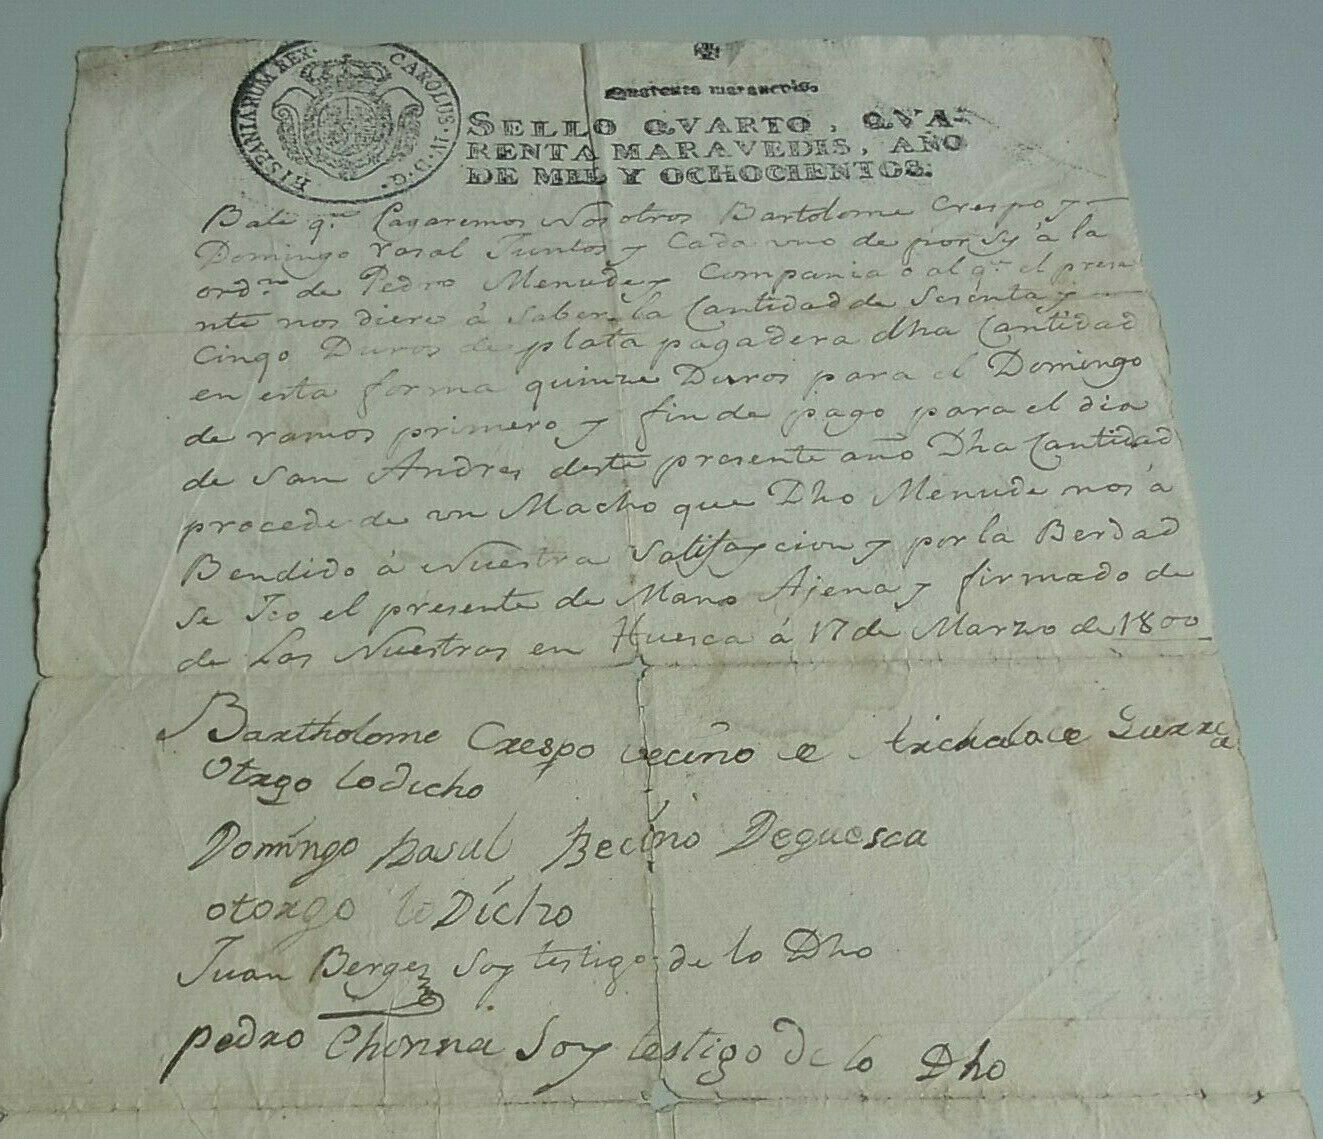 HISPANIARUM REX. CAROLUS. IV. D. G.
Quarenta maravedis.
SELLO QVARTO, QVA-
RENTA MARAVEDIS, AÑO
DE MIL Y OCHOCIENTOS.
Bale qe. Pagaremos Nosotros Bartolome Crespo y
Domingo rasal Juntos y Cada uno de por Sy á la
ordn. de Pedro Menude y Compania o al qe. el prese
nte nos diere á Saber la Cantidad de Sesenta y
Cinqo Duros de plata pagadera dha Cantidad
en esta forma quinze Duros para el Domingo
de ramos primero y fin de pago para el dia
de San Andres deste presente año Dha Cantidad
procede de un Macho que Dho Menude nos á
Bendido á Nuestra Satifaycion y por la Berdad
se Ico el presente de Mano Ajena y firmado de
de Las Nuestras en Huesca á 17 de Marzo de 1800
Bartholome Crespo veciño e Gurrea
Otrgo lo dicho
Domingo Rasal Beciño Deguesca
otorgo lo Dicho
Juan Berges Soy testigo de lo Dho
pedro Soy testigo de lo Dho